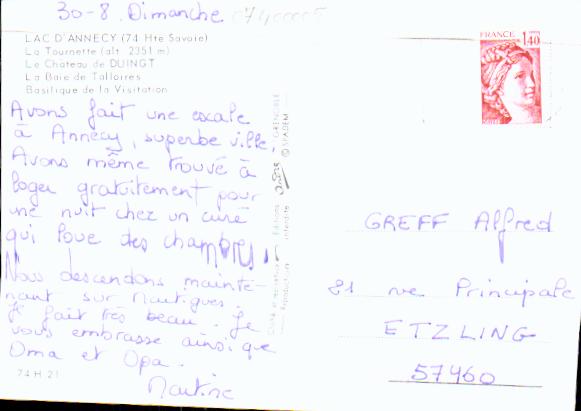 30-8. Dimanche
LAC D'ANNECY (74 Hte Savoie)
La Tournette (alt. 2351 m)
Le Château de DUINGT
La Baie de Talloires
Basilique de la Visitation
Avons fait une escale
à Annecy, superbe ville,
Avons même trouvé à
loger gratuitement pour
une nuit chez un curé
qui loue des chambres.
Nous descendons mainte-
nant sur Martigues.
Il fait très beau. Je
vous embrasse ainsi que
Oma et Opa.
Martine
74 H 21
Editions
GRENOBLE
© SPADEM
Reproduction interdite
FRANCE
1,40
GREFF Alfred
81 rue Principale
ETZLING
57460